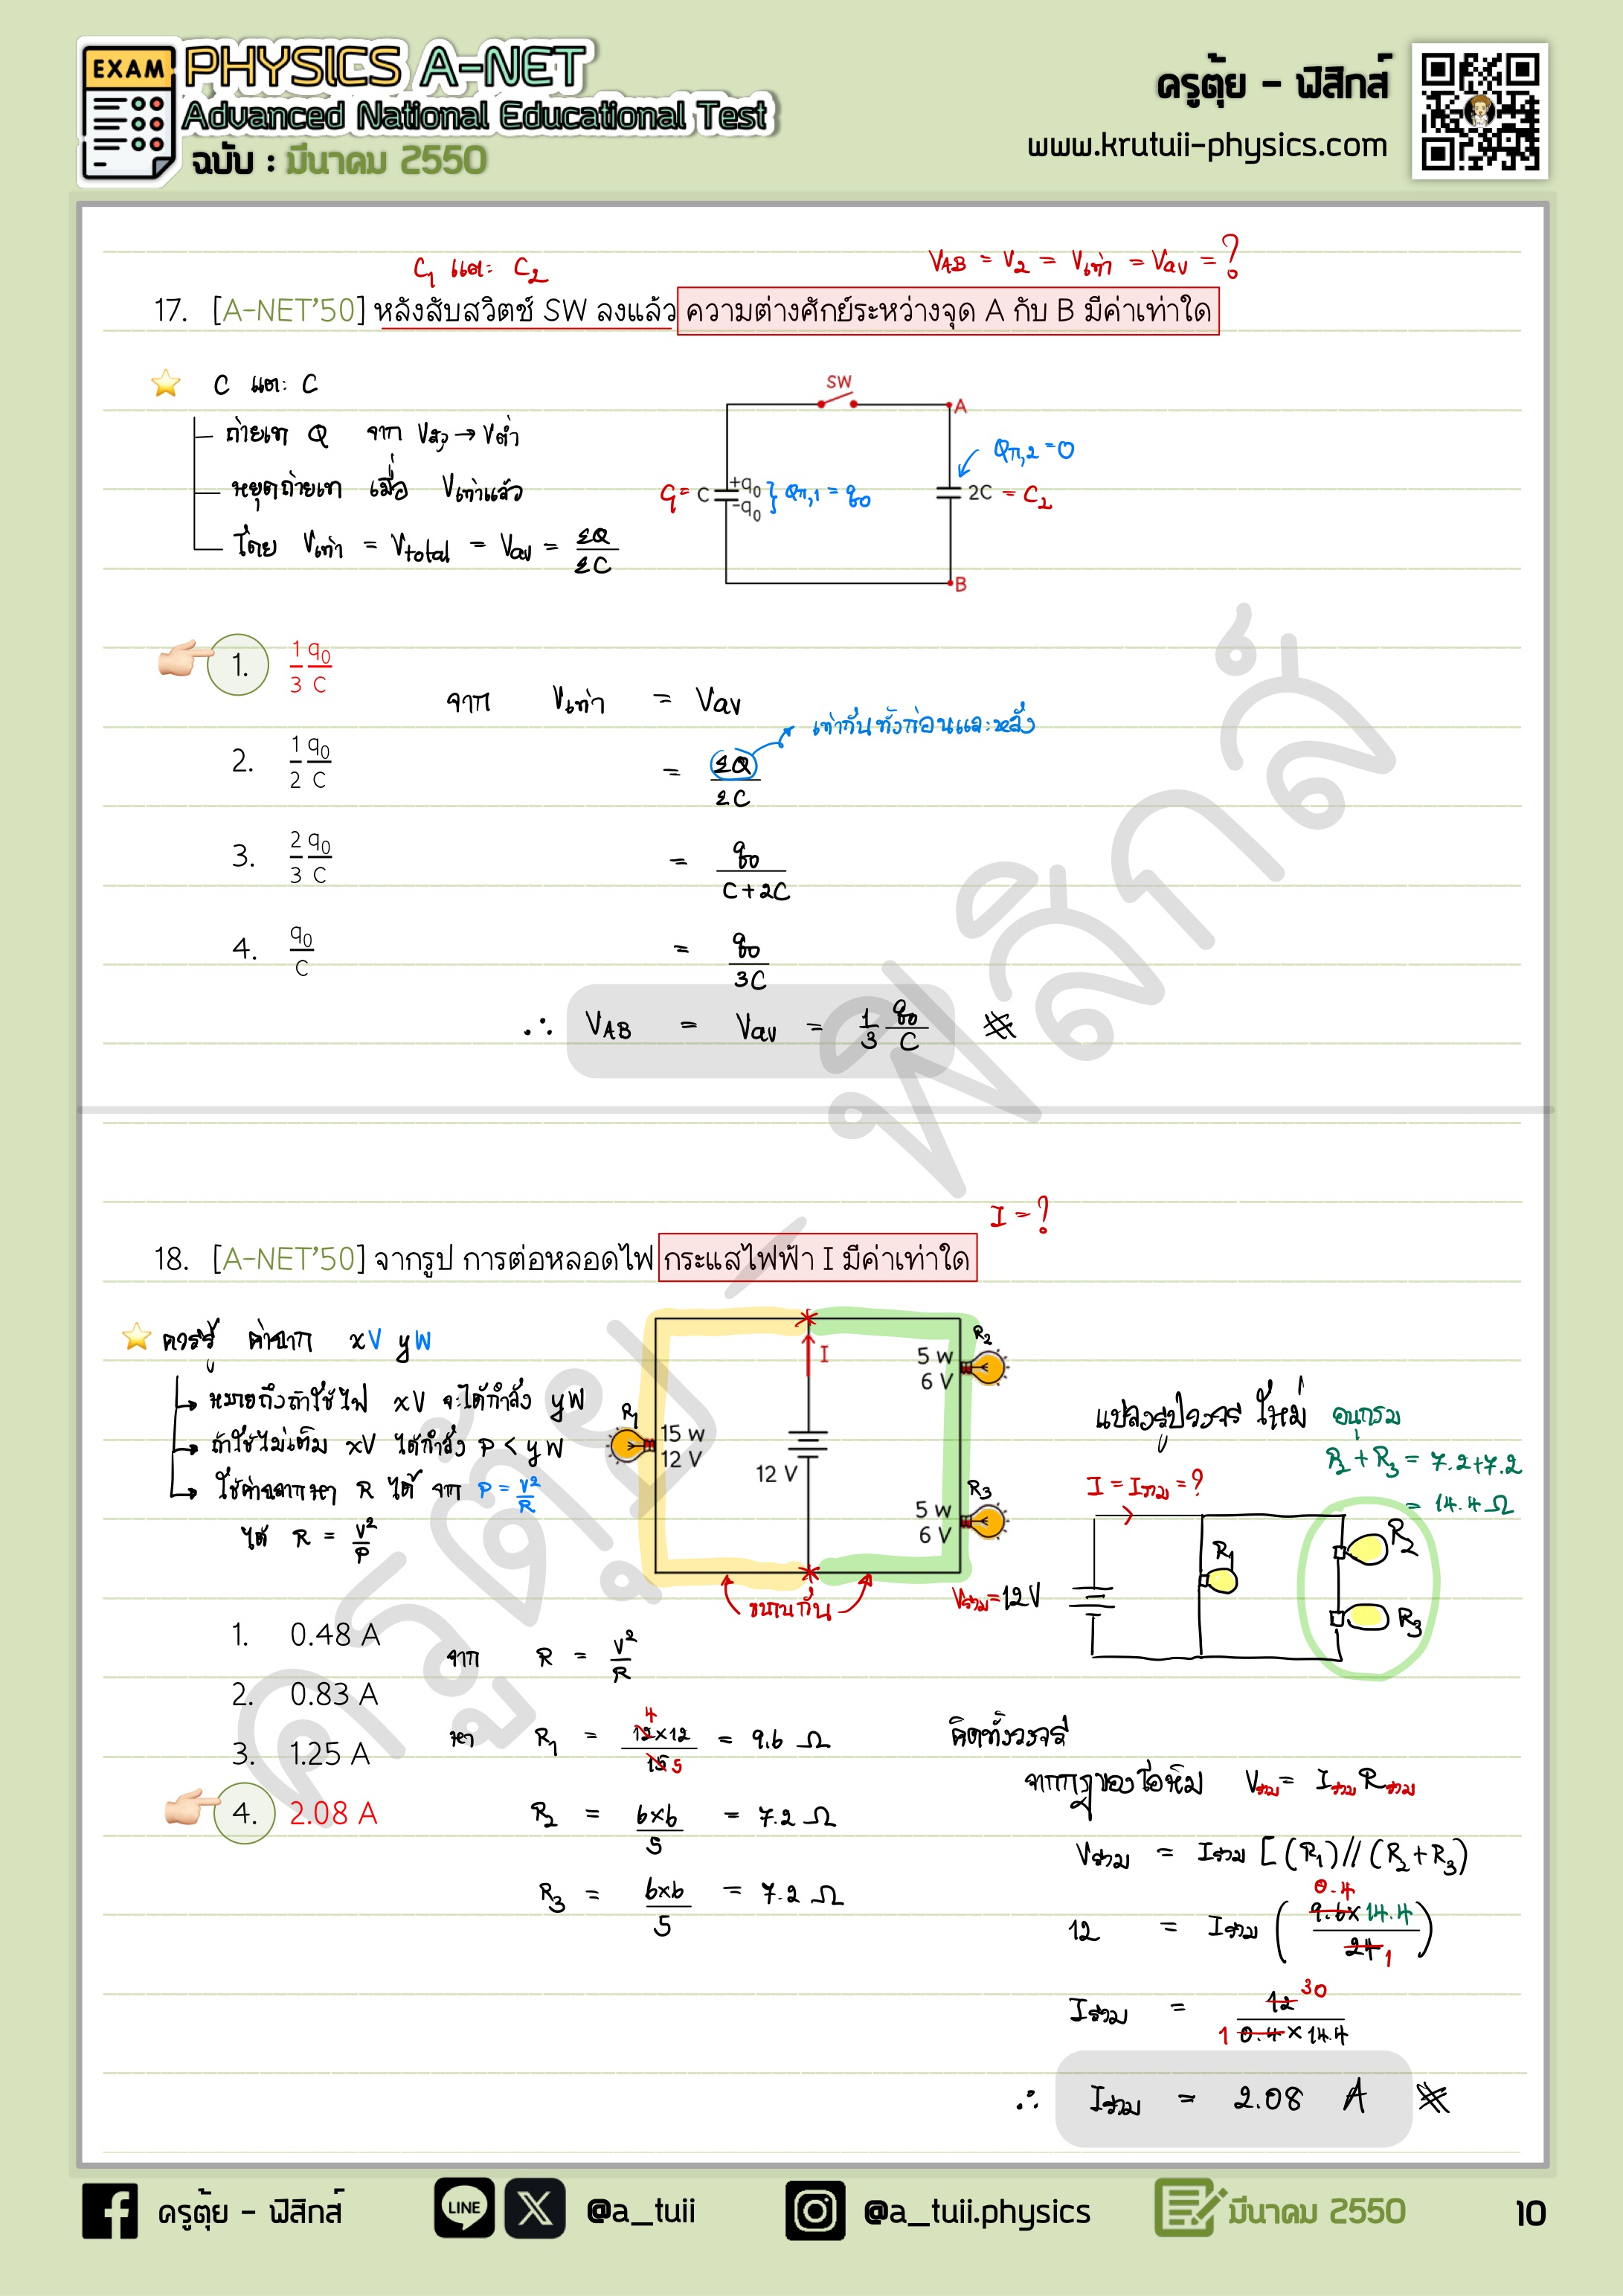 EXAM
PHYSICS A-NET
Advanced National Educational Test
ฉบับ : มีนาคม 2550
ครูตุ้ย - ฟิสิกส์
www.krutuii-physics.com
C₁ และ C₂
V_AB = V₂ = Vเท่า = Vav = ?
17. [A-NET'50] หลังสับสวิตช์ SW ลงแล้ว ความต่างศักย์ระหว่างจุด A กับ B มีค่าเท่าใด
C แตะ C
ถ่ายเท Q จาก Vสูง → Vต่ำ
หยุดถ่ายเท เมื่อ Vเท่าแล้ว
โดย Vเท่า = Vtotal = Vav = ΣQ/ΣC
SW
A
Qก,2 = 0
C₁ = C
+q₀
-q₀
Qก,1 = q₀
2C = C₂
B
1. 1/3 q₀/C
2. 1/2 q₀/C
3. 2/3 q₀/C
4. q₀/C
จาก Vเท่า = Vav
เท่ากันทั้งก่อนและหลัง
= ΣQ/ΣC
= q₀/(C+2C)
= q₀/3C
∴ V_AB = Vav = 1/3 q₀/C
I = ?
18. [A-NET'50] จากรูป การต่อหลอดไฟ กระแสไฟฟ้า I มีค่าเท่าใด
ควรรู้ ค่าฉลาก xV yW
หมายถึงถ้าใช้ไฟ xV จะได้กำลัง yW
ถ้าใช้ไม่เต็ม xV ได้กำลัง P < yW
ใช้ค่าฉลากหา R ได้ จาก P = V²/R
ได้ R = V²/P
I
R₁
15 W
12 V
12 V
R₂
5 W
6 V
R₃
5 W
6 V
ขนานกัน
แปลงรูปวงจรใหม่
อนุกรม
R₂ + R₃ = 7.2+7.2
= 14.4 Ω
I = Iรวม = ?
Vรวม = 12V
R₁
R₂
R₃
1. 0.48 A
2. 0.83 A
3. 1.25 A
4. 2.08 A
จาก R = V²/R
หา R₁ = 12×12/15 = 9.6 Ω
4
5
R₂ = 6×6/5 = 7.2 Ω
R₃ = 6×6/5 = 7.2 Ω
คิดทั้งวงจร
จากกฎของโอห์ม Vรวม = Iรวม Rรวม
Vรวม = Iรวม [(R₁)//(R₂+R₃)
0.4
12 = Iรวม (9.6×14.4/24)
1
Iรวม = 12/(0.4×14.4)
30
1
∴ Iรวม = 2.08 A
ครูตุ้ย - ฟิสิกส์
ครูตุ้ย - ฟิสิกส์
LINE
@a_tuii
@a_tuii.physics
มีนาคม 2550
10